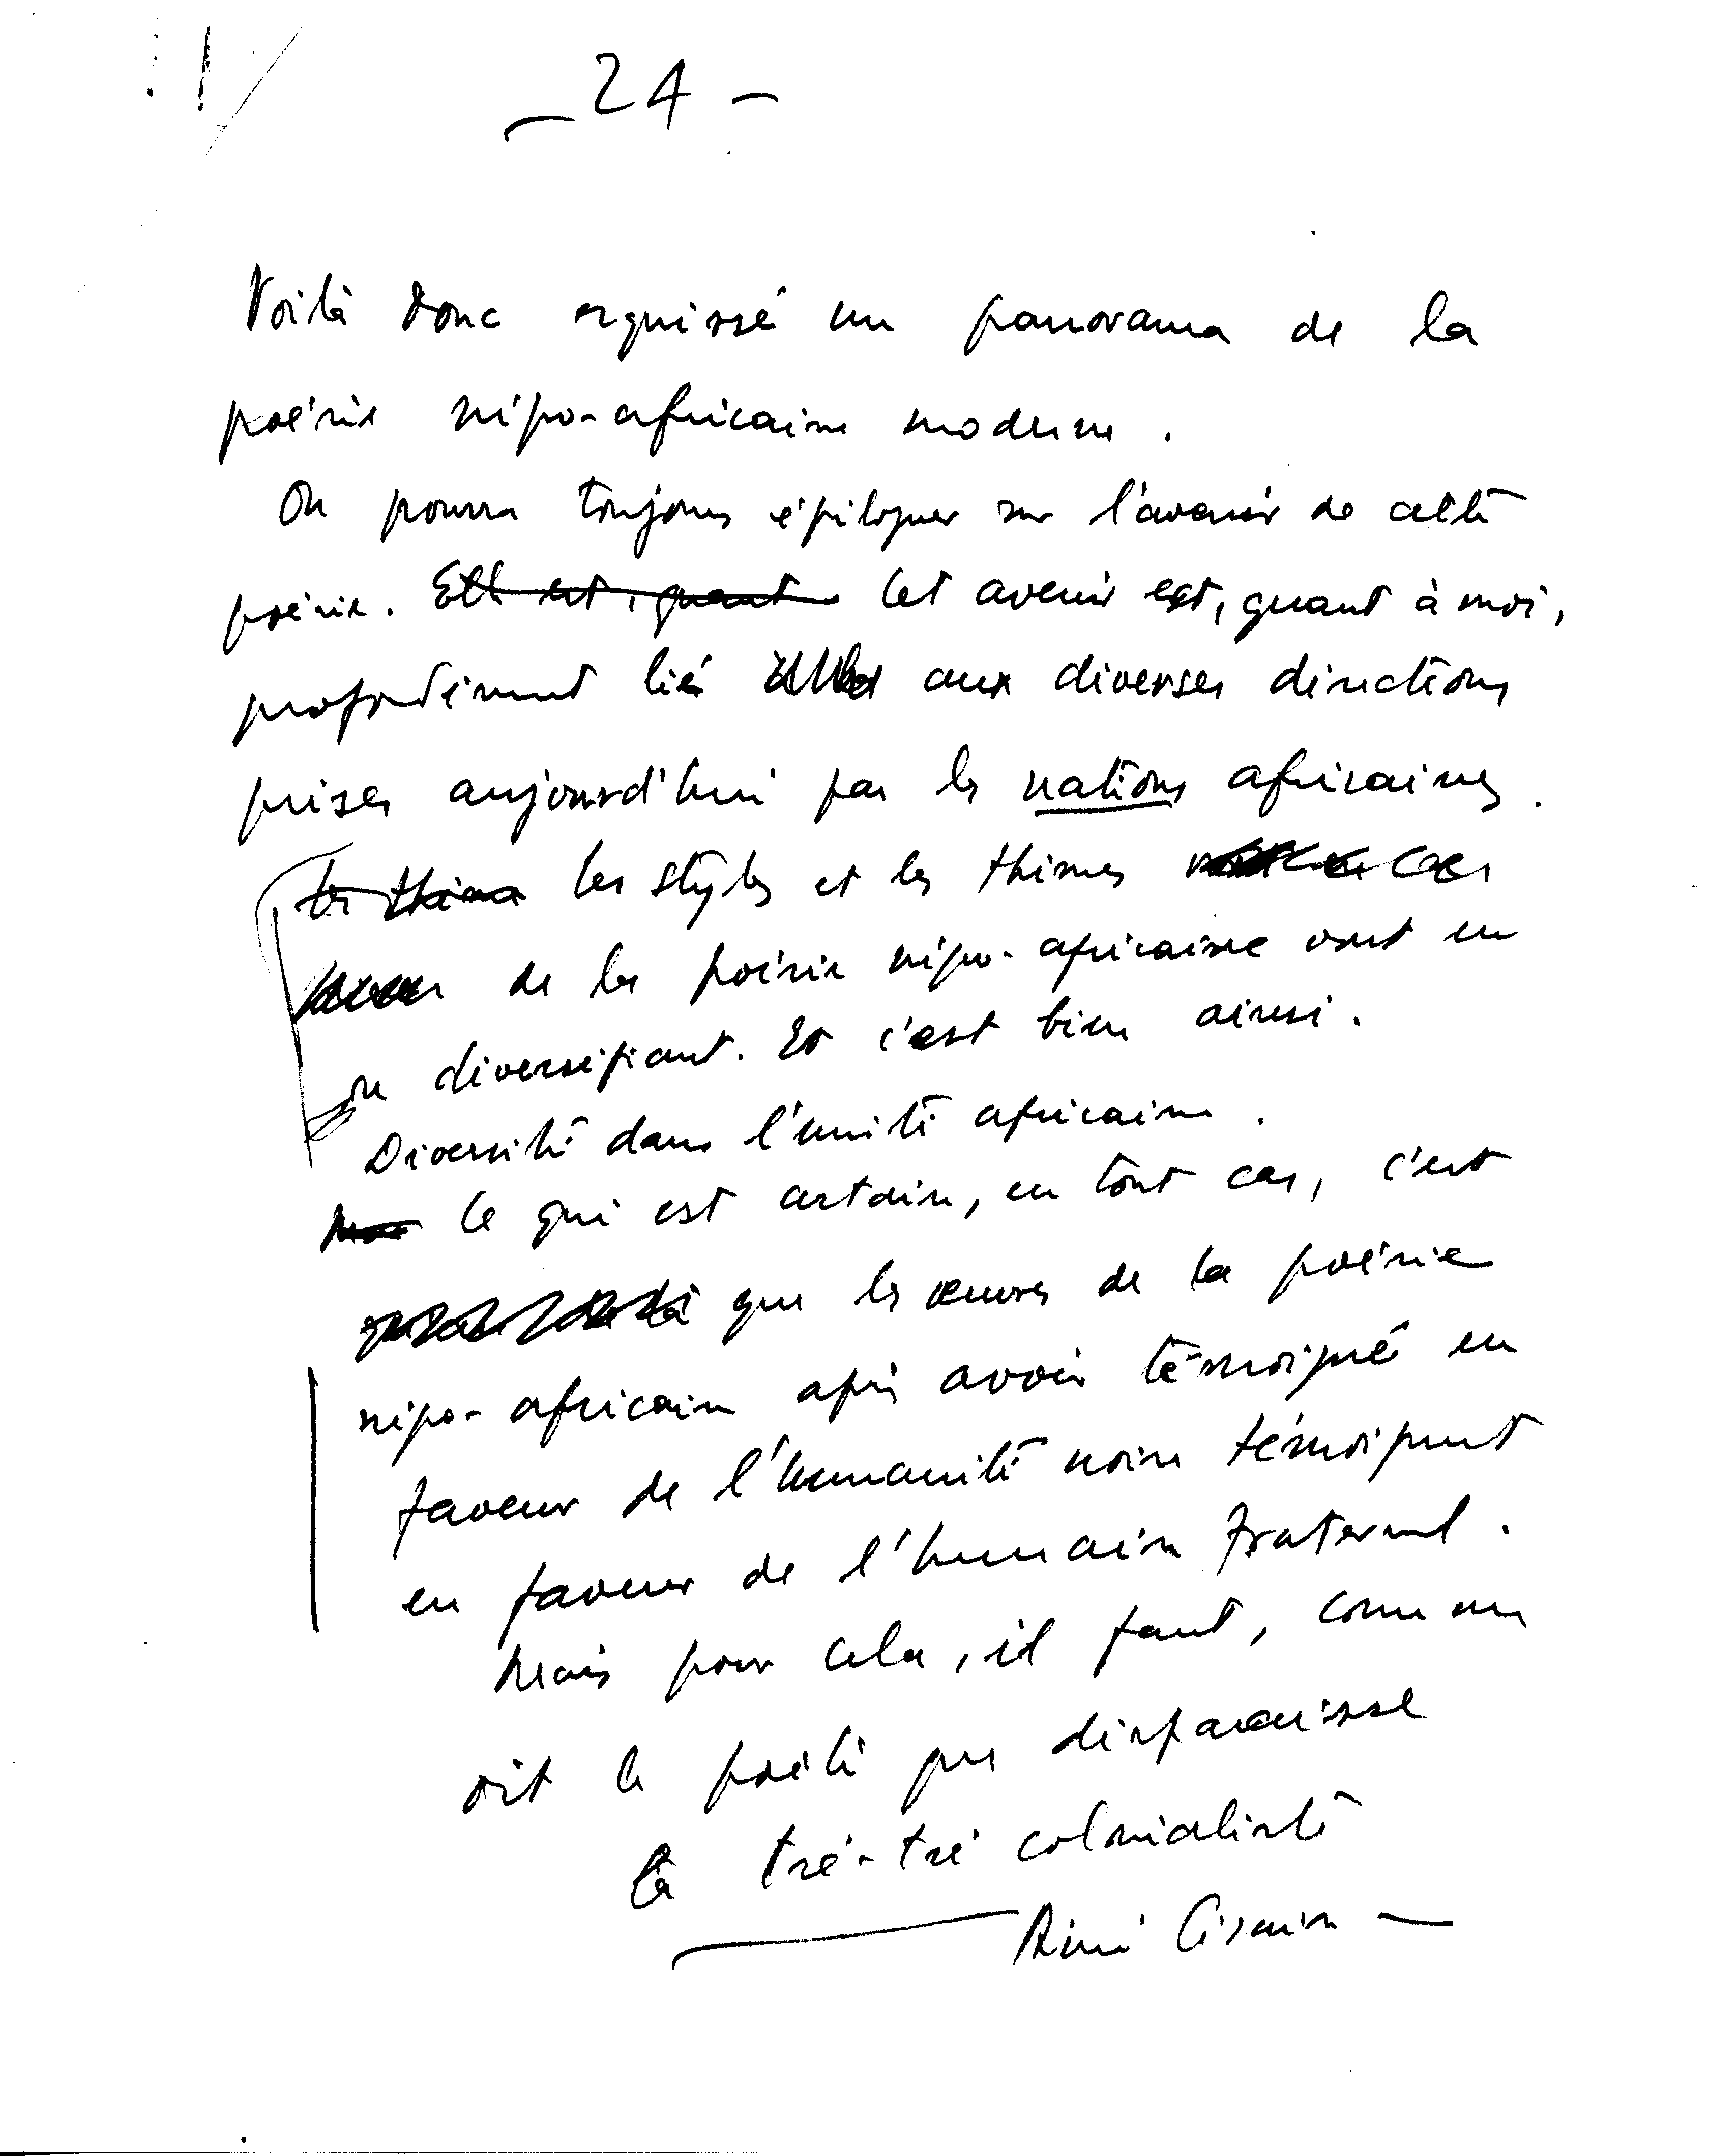 - 24 -
Voilà donc esquissé un panorama de la
poésie négro-africaine moderne.
On pourra toujours épiloguer sur l'avenir de cette
poésie. Elle est, quant Cet avenir est, quant à moi,
profondément lié aux diverses directions
prises aujourd'hui par les nations africaines.
Les thèmes Les styles et les thèmes
de la poésie négro-africaine vont en
se diversifiant. Et c'est bien ainsi.
Diversité dans l'unité africaine.
Ce qui est certain, en tout cas, c'est
que les œuvres de la poésie
négro-africaine après avoir témoigné en
faveur de l'humanité noire témoignent
en faveur de l'humain fraternel.
Mais pour cela, il faut, comme
dit le poète que disparaisse
la tsé-tsé colonialiste
Aimé Césaire —